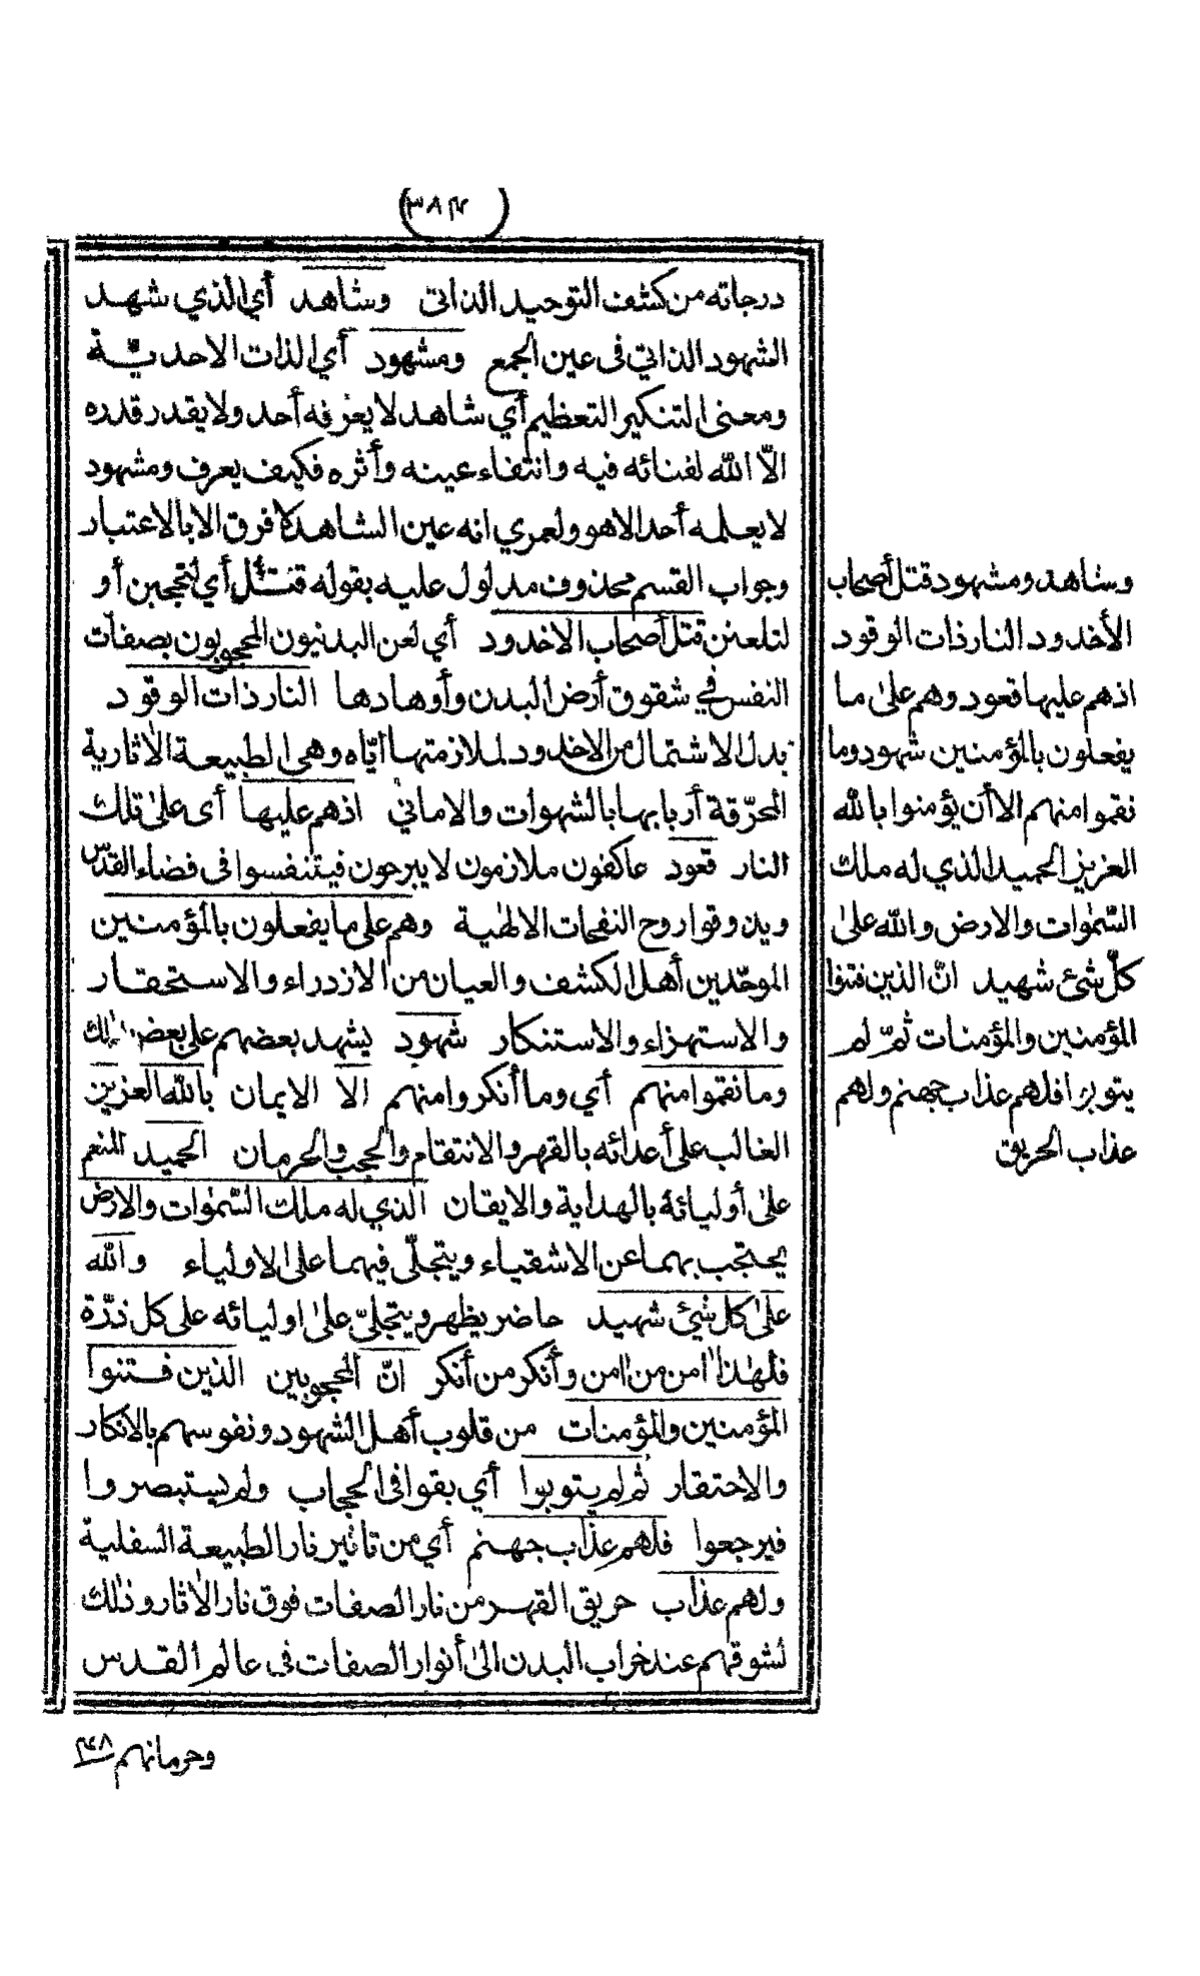 (٣٨٤)
درجاته من كشف التوحيد الذاتى وشاهد أي الذي شهد
الشهود الذاتي فى عين الجمع ومشهود أي الذات الاحديّة
ومعنى التنكير التعظيم أي شاهد لا يعرفه أحد ولا يقدر قدره
الّا الله لفنائه فيه وانتفاء عينه وأثره فكيف يعرف ومشهود
لا يعلمه أحد الا هو ولعمري انه عين الشاهد لا فرق الا بالاعتبار
وجواب القسم محذوف مدلول عليه بقوله قتل أي لتحجبن أو
لتلعنن قتل أصحاب الاخدود أي لعن البدنيون المحجوبون بصفات
النفس في شقوق أرض البدن وأوهادها النار ذات الوقود
بدل الاشتمال من الاخدود لملازمتها ايّاه وهى الطبيعة الآثارية
المحرّقة أربابها بالشهوات والاماني اذ هم عليها أى على تلك
النار قعود عاكفون ملازمون لا يبرحون فيتنفسوا فى فضاء القدس
ويذوقوا روح النفحات الالهٰية وهم على ما يفعلون بالمؤمنين
الموحّدين أهل الكشف والعيان من الازدراء والاستحقار
والاستهزاء والاستنكار شهود يشهد بعضهم على بعض بذلك
وما نقموا منهم أي وما أنكروا منهم الا الايمان بالله العزيز
الغالب على أعدائه بالقهر والانتقام والحجب والحرمان الحميد المنعم
علىٰ أوليائه بالهداية والايقان الذي له ملك السّمٰوات والارض
يحتجب بهما عن الاشقياء ويتجلّى فيهما على الاولياء والله
علىٰ كل شيئ شهيد حاضر يظهر ويتجلىّ علىٰ اوليائه على كل ذرّة
فلهٰذا اٰمن من اٰمن وأنكر من أنكر انّ المحجوبين الذين فتنوا
المؤمنين والمؤمنات من قلوب أهل الشهود ونفوسهم بالانكار
والاحتقار ثم لم يتوبوا أي بقوا فى الحجاب ولم يستبصروا
فيرجعوا فلهم عذاب جهنم أي من تاثير نار الطبيعة السفلية
ولهم عذاب حريق القهر من نار الصفات فوق نار الاٰثار وذٰلك
لشوقهم عند خراب البدن الىٰ أنوار الصفات فى عالم القدس
وحرمانهم
وشاهد ومشهود قتل أصحاب
الأخدود النار ذات الوقود
اذ هم عليها قعود وهم علىٰ ما
يفعلون بالمؤمنين شهود وما
نقموا منهم الا أن يؤمنوا بالله
العزيز الحميد الذي له ملك
السّمٰوات والارض والله علىٰ
كلّ شئ شهيد انّ الذين فتنوا
المؤمنين والمؤمنات ثمّ لم
يتوبوا فلهم عذاب جهنم ولهم
عذاب الحريق